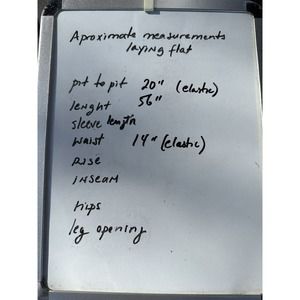 Aproximate measurements
laying flat
pit to pit 20" (elastic)
lenght 56"
sleeve length
waist 14" (elastic)
Rise
inseam
hips
leg opening